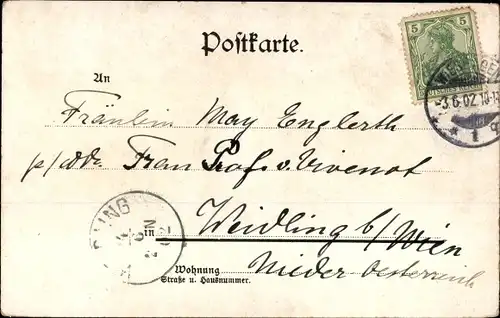 Postkarte.
5 5
DEUTSCHES REICH
-3.6.02.10-11
* 1 g
An
Fräulein May Englerth
p/adr Frau Prof. v. Vivenot
in Weidling b/Wien
Wohnung
Straße u. Hausnummer.
Nieder Oesterreich